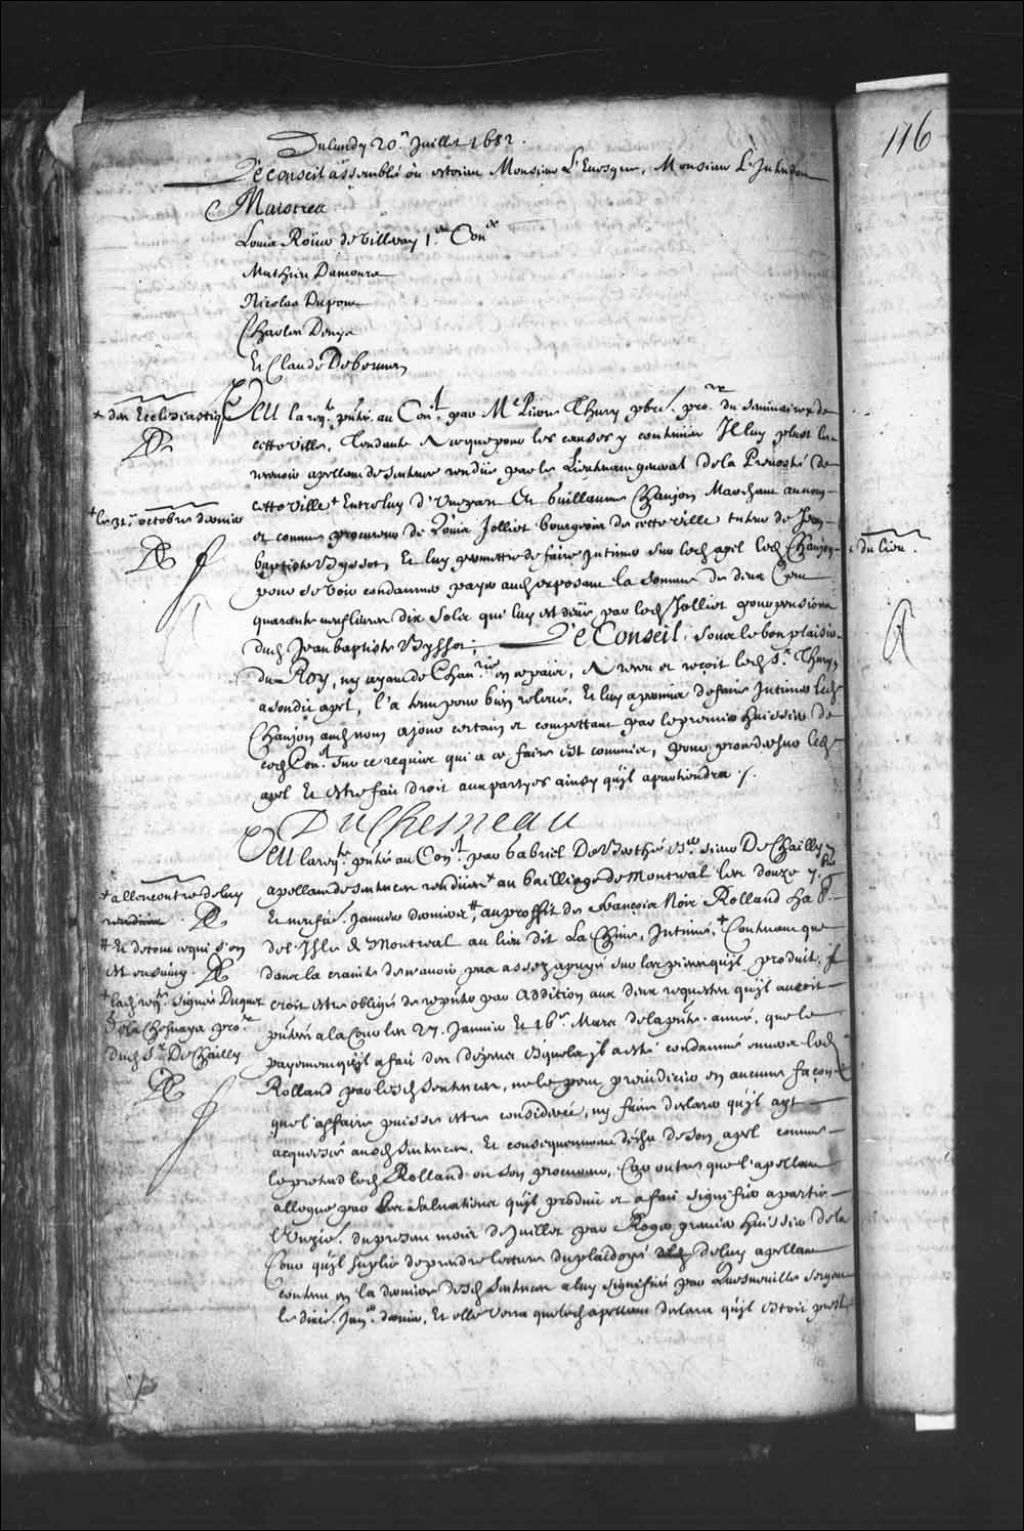 116
Du lundy 20.e Juillet 1682.
Le Conseil assemblé ou estoient Monsieur L'Evesque, Monsieur L'Intendant
Maistres
Louis Roüer de Villeray 1.er Con.er
Mathieu Damours
Nicolas Dupont
Charles Denys
Et Claude De bermen
+ des Ecclesiastiq
Veu la req.te pñtée au Con.l par M.e Pierre Thury pbre. pro.r du Seminaire + de
cette ville, Tendante A ce que pour les causes y contenües Il luy plust le
recevoir apellant de Sentence rendüe par le Lieutenant general de la Prevosté de
cette ville + Entre luy d'Une part Et Guillaume Chanjon Marchant au nom
+ le 31.e octobre dernier
et comme procureur de Loüis Jolliet bourgeois de cette ville tuteur de Jean
baptiste Byssot, Et luy permettre de faire Intimer sur led. apel led. Chanjon
+ du lieu.
pour se voir condamner payer aud. exposant la somme de deux Cent
quarante neuf livres dix Sols qui luy est deüe par led. Jolliet pour pension
dud. Jean baptiste Byssot; Le Conseil sous le bon plaisir
du Roy, ny ayant de Chan.rie en ce païs, A receu et reçoit led. S.r Thury
a sondit apel, l'a tenu pour bien relevé, Et luy a permis de faire Intimer led.
Chanjon aud. nom a jour certain et competant par le premier huissier de
ced. Con.l sur ce requis qui a ce faire est commis, pour proceder sur led.
apel Et estre fait droit aux partyes ainsy qu'il apartiendra ./.
DuChesneau
Veu la req.te pñtée au Con.l par Gabriel De Berthé Es.er sieur De Chailly
apellant de sentences rendües + au bailliage de Montreal les douze 7.bre
+ allencontre de luy
Et neufie. Janvier dernier #, au proffit de François Noir Rolland ha.t
# Et de tout ce qui s'en
est ensuivy.
de l'Isle de Montreal au lieu dit La Chine, Intimé, + Contenant que
dans la crainte de n'avoir pas assez apuyé sur les pieces qu'il produit, il
+ lad. req.te signée Duquet
de la Chesnaye pro.r
dud. S.r De Chailly
croit estre obligé de repñter par addition aux deux requestes qu'il auroit
pñtées a la Cour les 27. Janvier Et 16.e Mars de la pñte. année, que le
payement qu'il a fait des dépens esquels il a esté condamné envers led.
Rolland par lesd. Sentences, ne le peut prejudicier en aucune façon
que l'affaire puisse estre considerée, ny faire declarer qu'il ayt
acquiescé ausd. Sentences, Et consequemment décheu de son apel comme
le pretend led. Rolland ou son procureur, Car outre que l'apellant
allegue par Les Salvations qu'il produit et a fait signifier a partie
l'Onzie. du present mois de Juillet par Roger premier huissier de la
Cour qu'il suplie de prendre lecture du plaidoyé de luy apellant
contenu en la derniere desd. Sentences a luy signifiée par Quesneville sergent
le dixie. Jan.er dernier, Et elle verra que led. apellant declara qu'il estoit prest